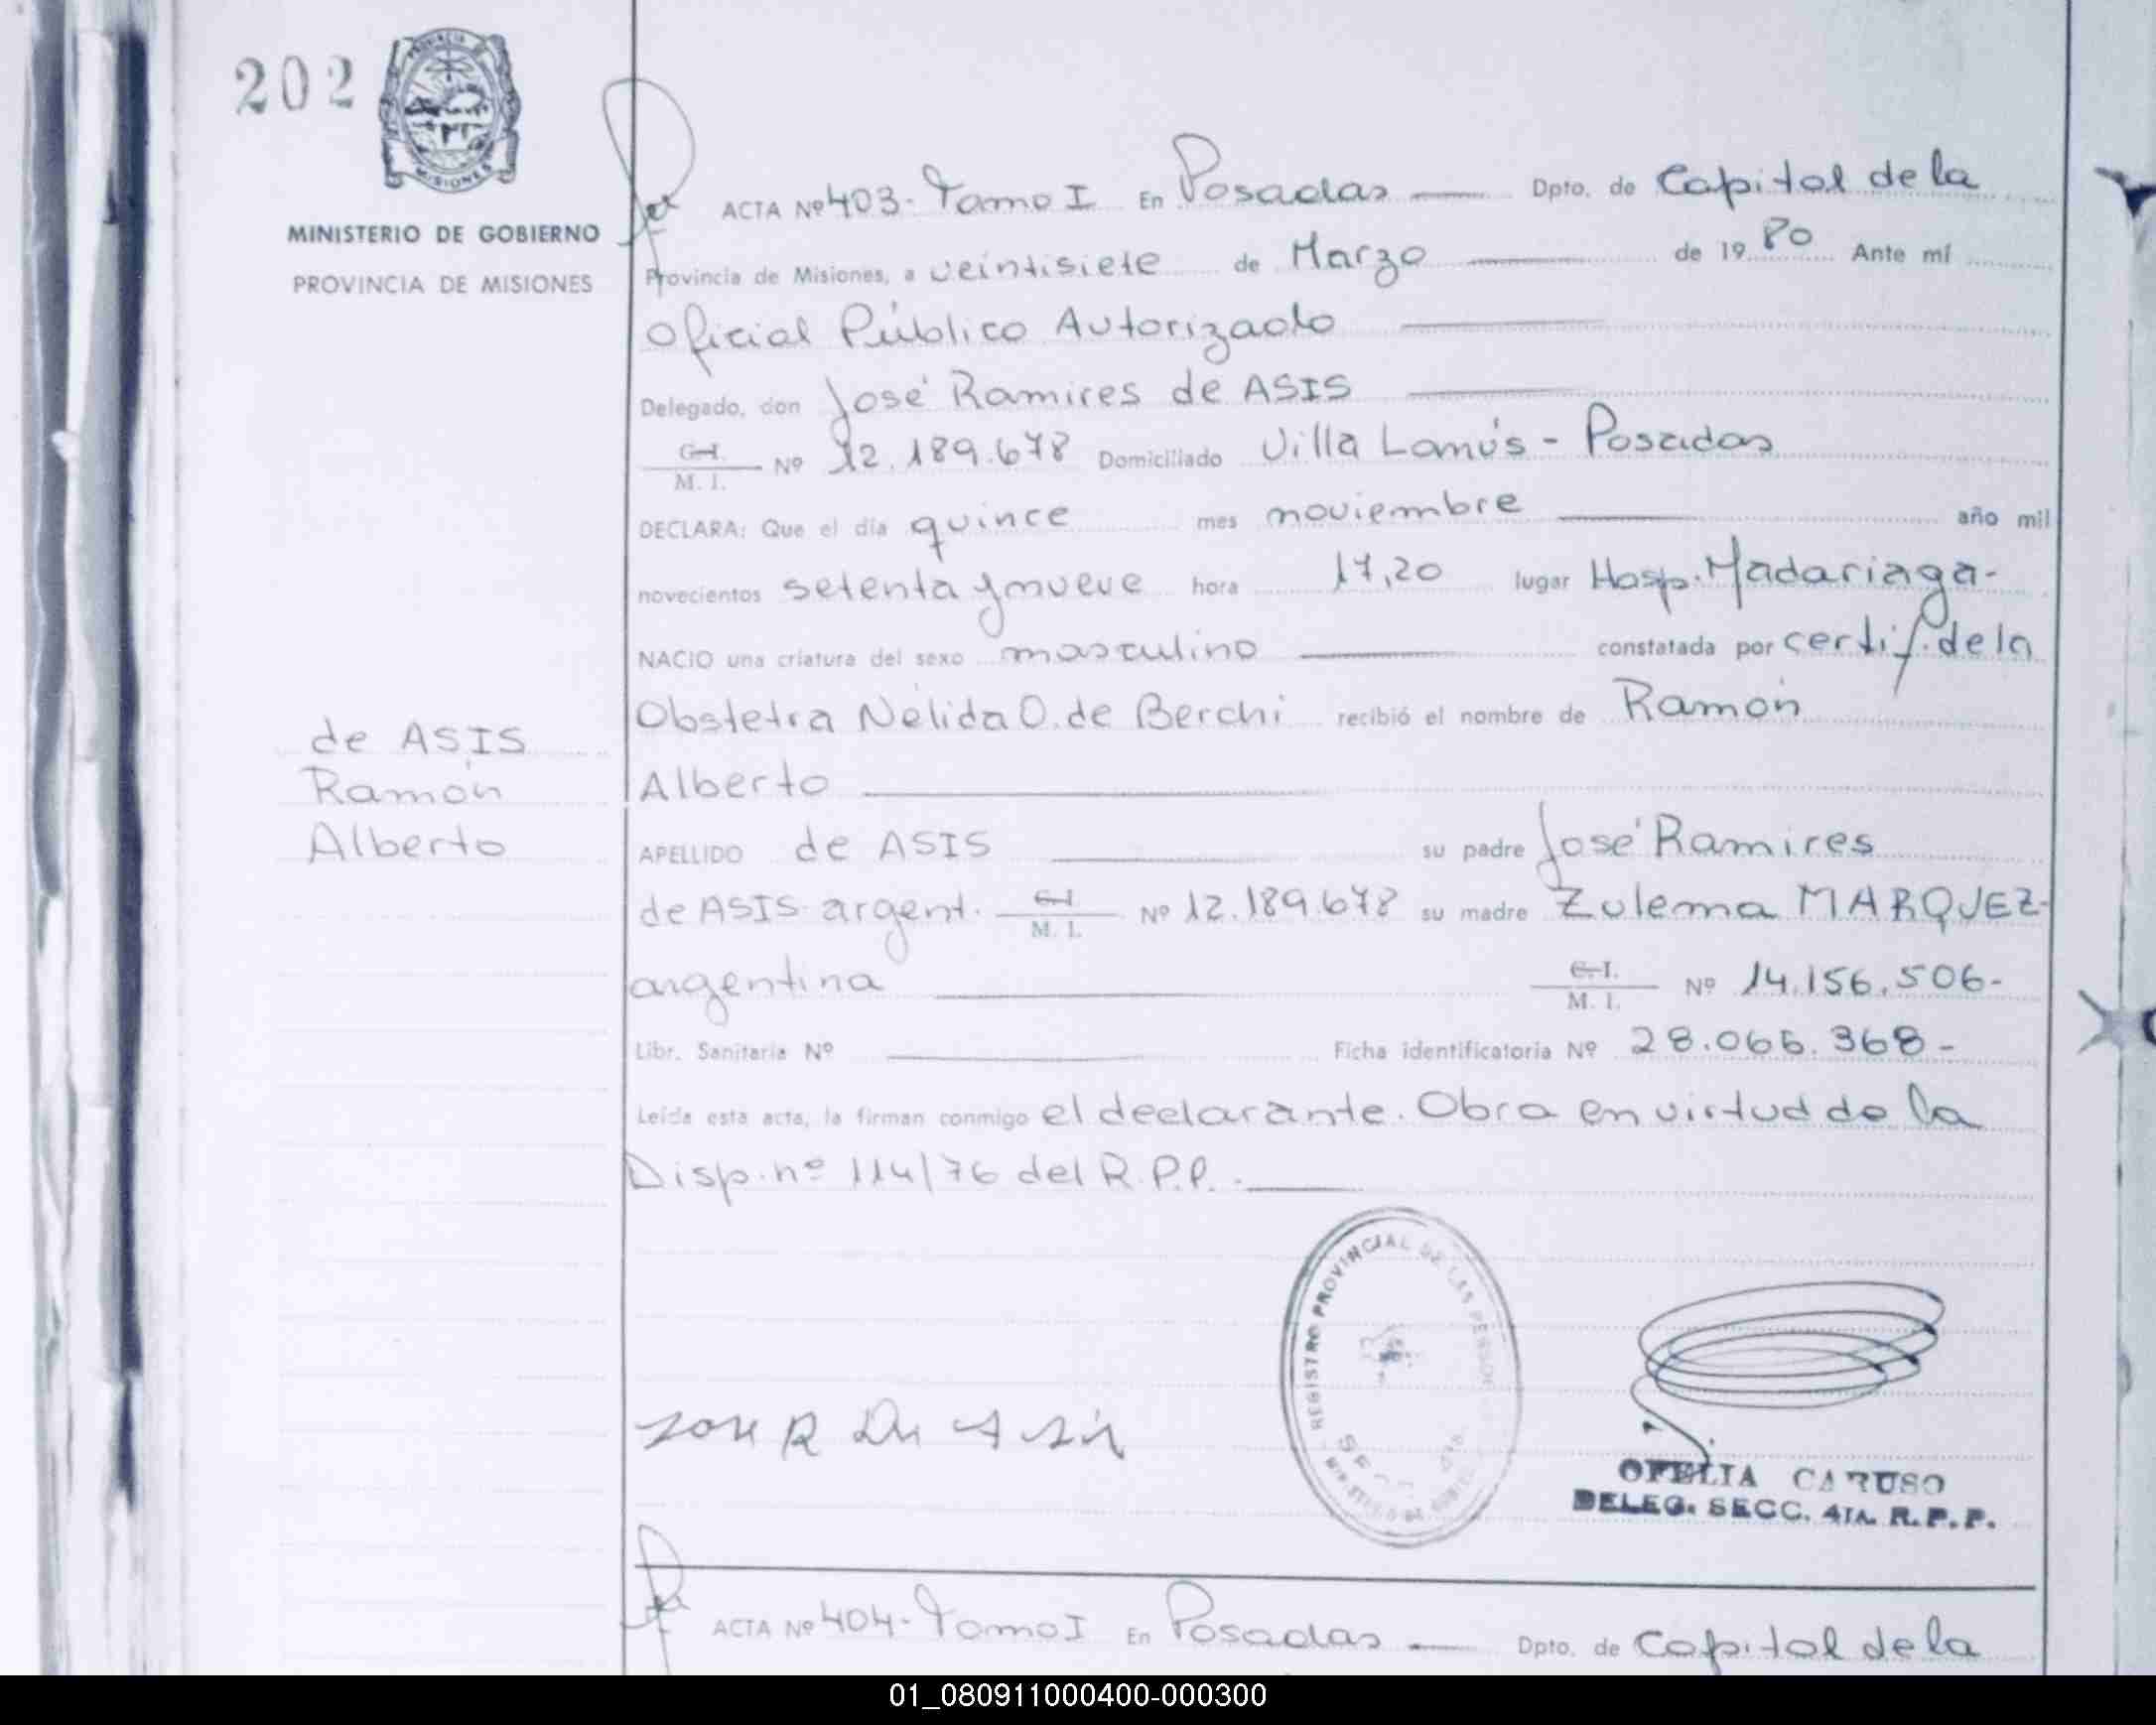 202
PROVINCIA DE
MISIONES
MINISTERIO DE GOBIERNO
PROVINCIA DE MISIONES
ACTA Nº 403- Tomo I En Posadas Dpto. de Capital de la
Provincia de Misiones, a veintisiete de Marzo de 19 80 Ante mí
Oficial Público Autorizado
Delegado, don José Ramires de ASIS
C.I. M. I. Nº 12.189.678 Domiciliado Villa Lanús - Posadas
DECLARA: Que el día quince mes noviembre año mil
novecientos setenta y nueve hora 17,20 lugar Hosp. Madariaga-
NACIO una criatura del sexo masculino constatada por certif. de la
Obstetra Nélida O. de Berchi recibió el nombre de Ramón
Alberto
de ASIS
Ramón
Alberto
APELLIDO de ASIS su padre José Ramires
de ASIS argent. C.I. M. I. Nº 12.189.678 su madre Zulema MARQUEZ-
argentina C.I. M. I. Nº 14.156.506-
Libr. Sanitaria Nº Ficha identificatoria Nº 28.066.368-
Leída esta acta, la firman conmigo el declarante. Obra en virtud de la
Disp. nº 114/76 del R.P.P.-
REGISTRO PROVINCIAL DE LAS PERSO
Jose R De Asis
OFELIA CARUSO
DELEG. SECC. 4TA. R.P.P.
ACTA Nº 404- Tomo I En Posadas Dpto. de Capital de la
01_080911000400-000300